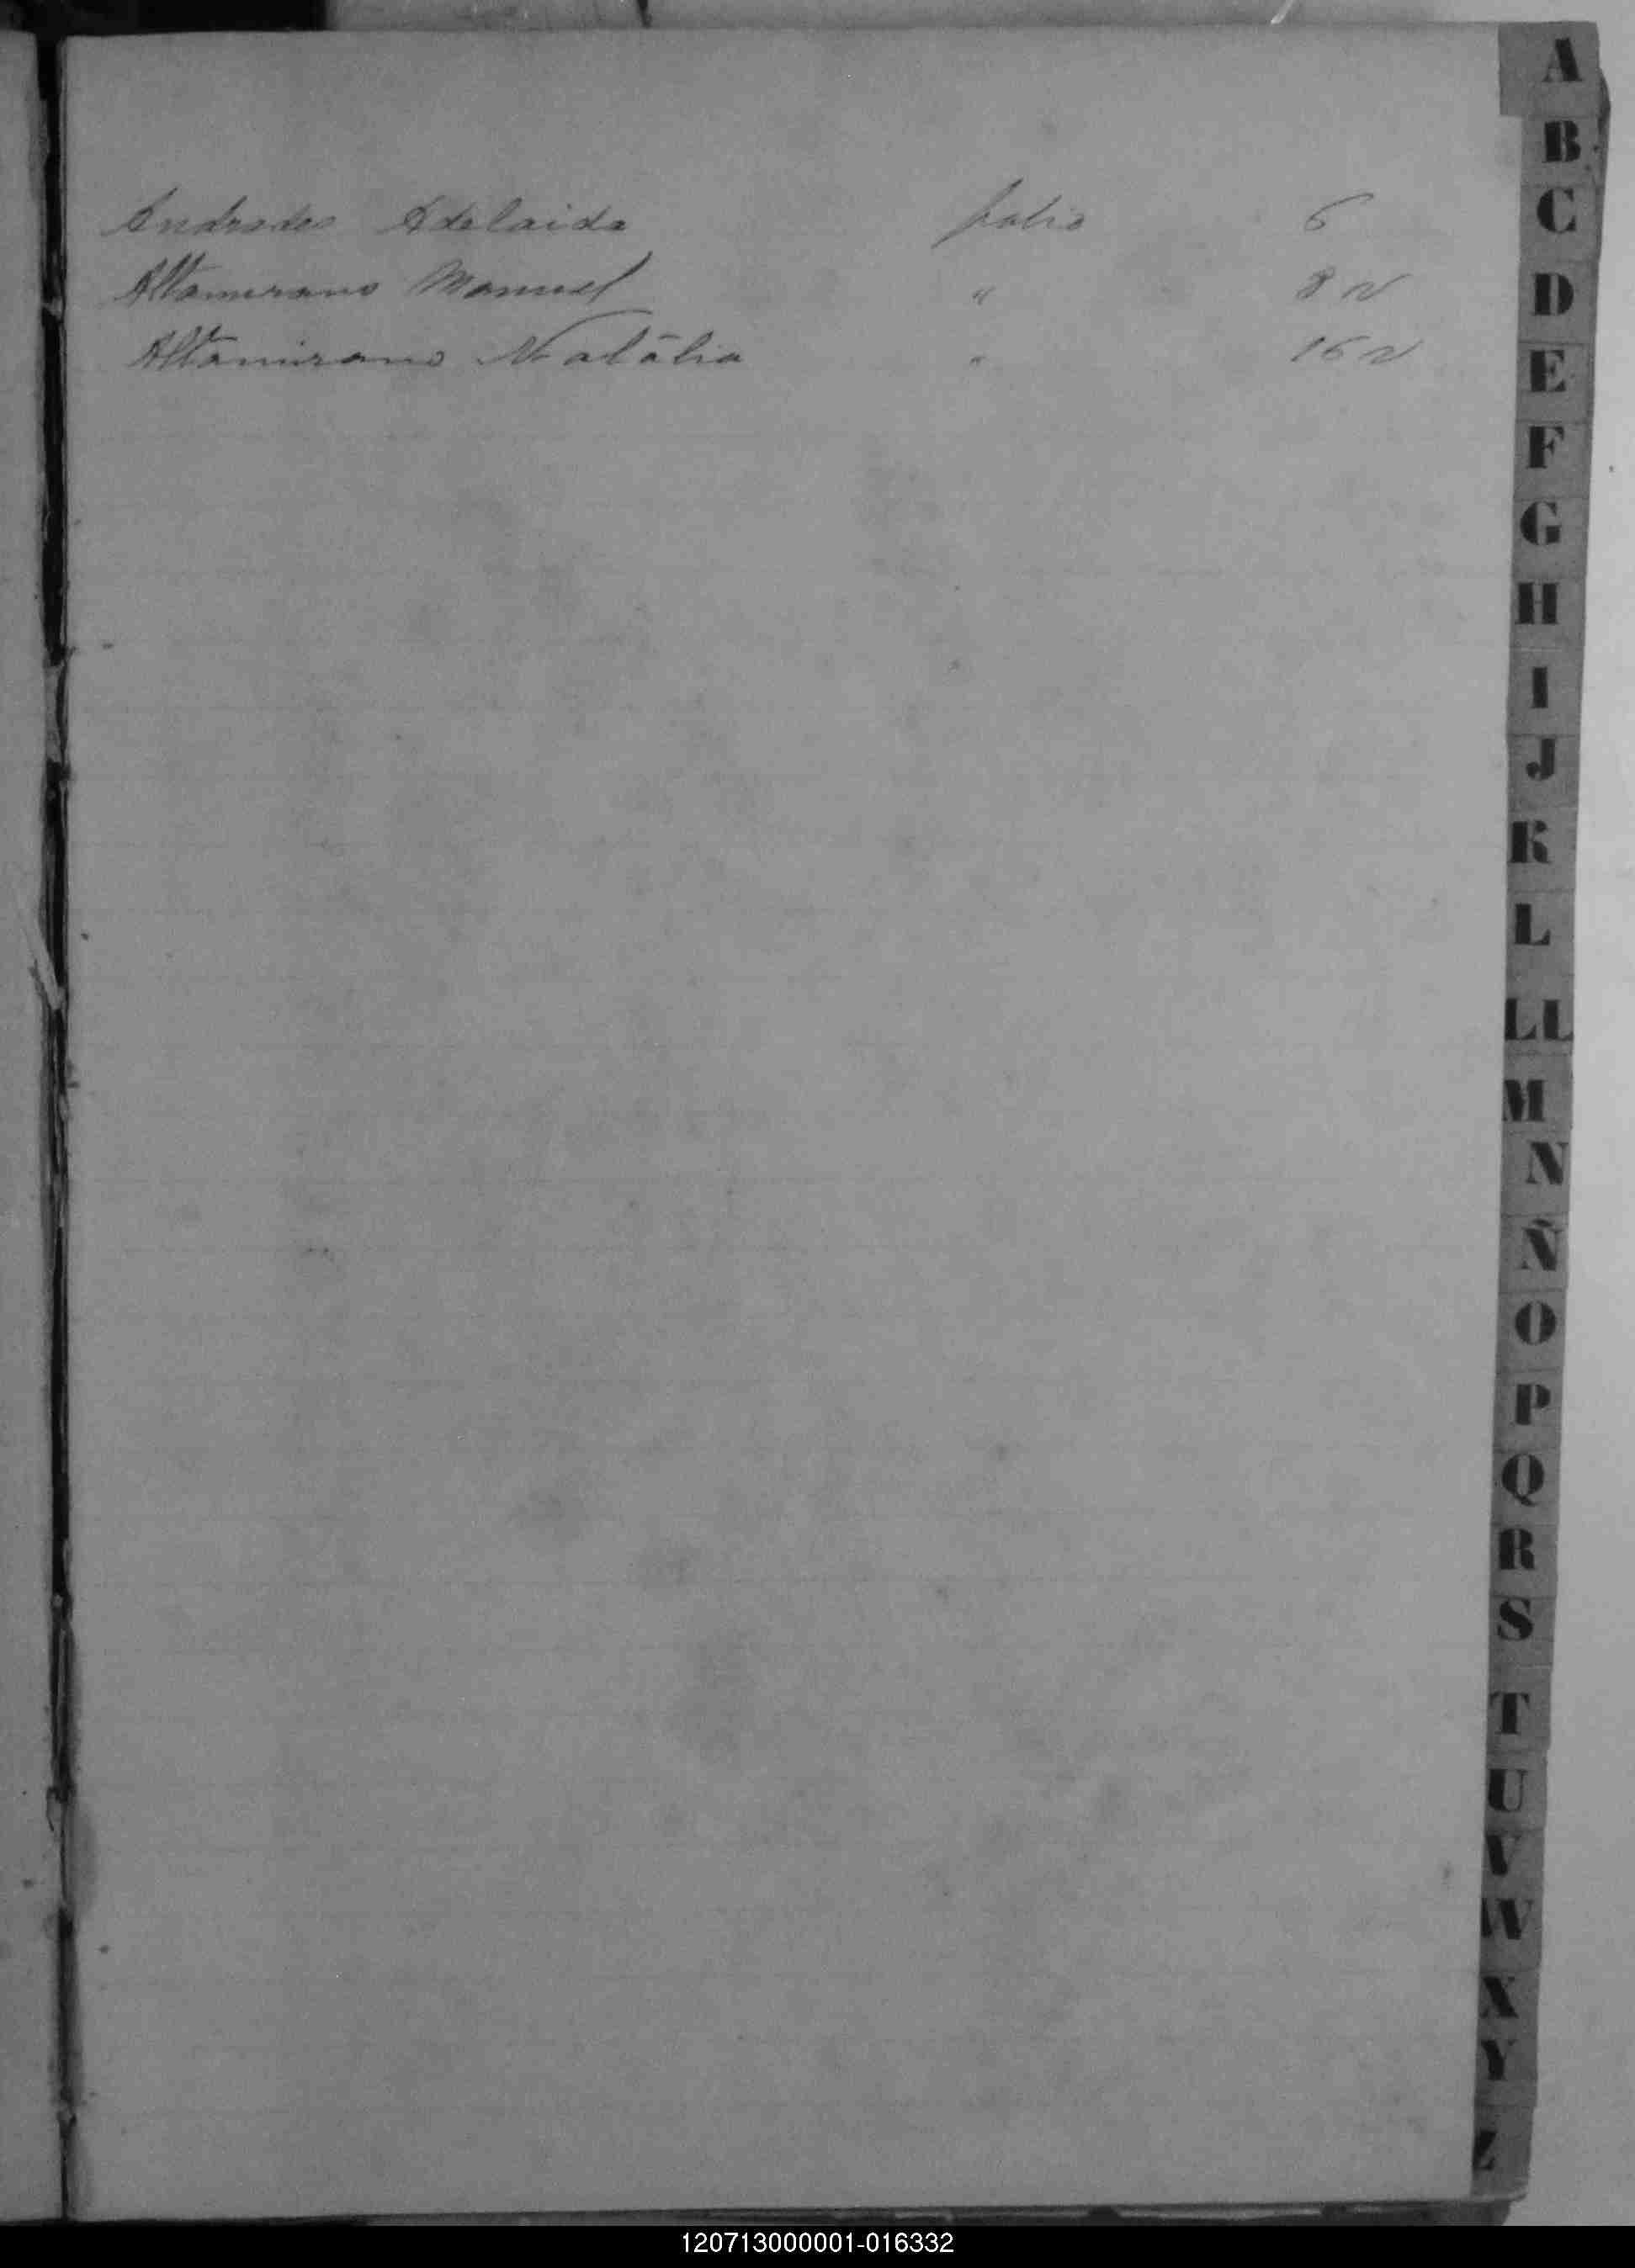 Andrades Adelaida folio 6
Altamirano Manuel " 8 v
Altamirano Natalia " 16 v
A
B
C
D
E
F
G
H
I
J
K
L
LL
M
N
Ñ
O
P
Q
R
S
T
U
V
W
X
Y
Z
120713000001-016332